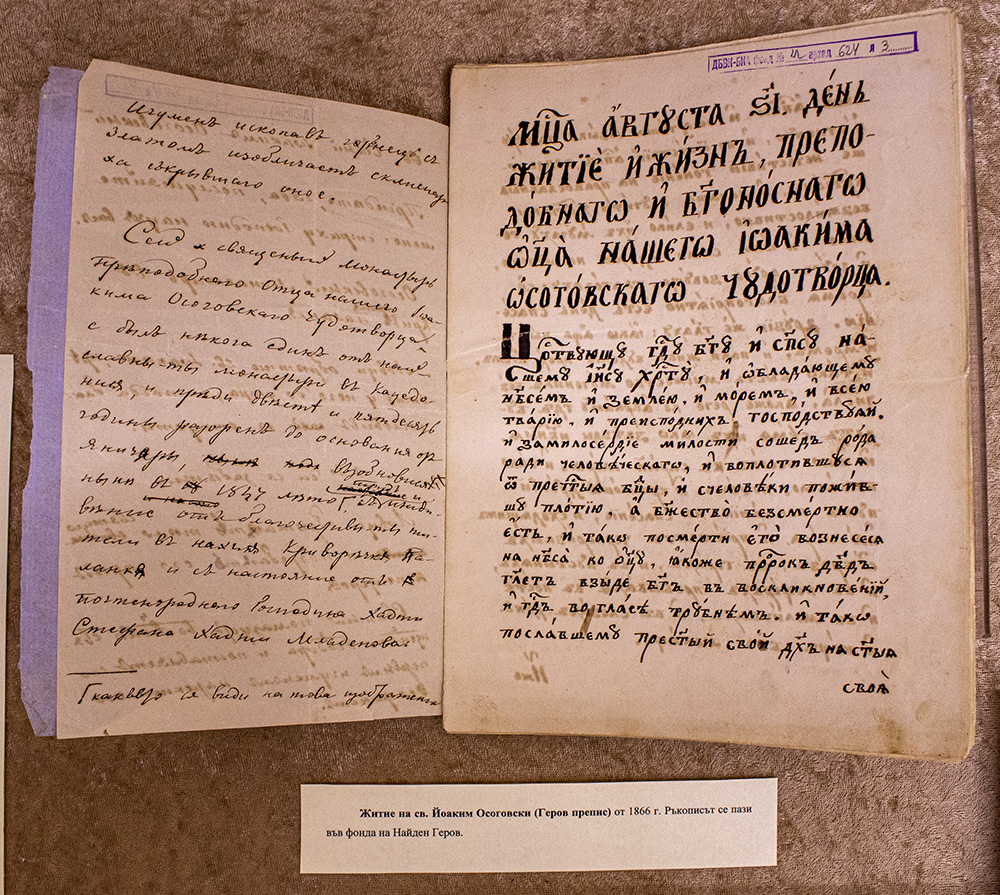 Игуменъ ископавъ гърнецъ съ
златомъ изобличаетъ склисиар
ха скрывшаго оное.
Сей священый монастырь
Преподобнаго Отца нашего Іоа-
кима Осоговскаго Чудотворца
е былъ нѣкога единъ отъ най
славны-ты монастыри въ Кацедо-
нія, и прѣди двѣстѣ и пятдесятъ
годины разоренъ до основанія от
Яничары, възобновися
ныни въ 1847 лѣто
отъ благочестивы-ты жи-
тели въ нахия Криворѣчка Па-
ланка и съ настояніе отъ
почтенородного Господина Хаджи
Стефана Хаджи Младеновъ.
какъвто ся види на това изображеніе
ДБЗК-БИА Фонд № 22 а.след 624 л 3
Мц҃а а҆́вгꙋста ѕ҃і. де́нь
житїѐ и҆ жи́знь, препо-
до́бнагѡ и҆ бг҃оно́снагѡ
ѻ҆ц҃а̀ на́шегѡ і҆ѡаки́ма
ѡ҆сого́вскагѡ чꙋдотво́рца.
Црⷭ҇твꙋющꙋ гдⷭ҇ꙋ бг҃ꙋ и҆ сп҃сꙋ на-
шемꙋ і҆и҃сꙋ хрⷭ҇тꙋ̀, и҆ ѡ҆блада́ющемꙋ
нб҃семъ и҆ землею, и҆ мо́ремъ, и҆ всею
тва́рїю, и҆ преиспо́днихъ господствꙋѧй.
и҆ за милосе́рдїе ми́лости соше́дъ ро́да
ради человѣ́ческагѡ, и҆ воплоти́вшꙋсѧ
ѿ прест҃ыѧ бц҃ы, и҆ с человѣ́ки пожи́в-
шꙋ пло́тїю, а҆ бж҃ество̀ безсмертно
е҆́сть, и҆ та́кѡ посмерти е҆гѡ̀ вознесе́сѧ
на нб҃са̀ ко ѻ҆ц҃ꙋ, ꙗ҆́коже прⷪ҇ро́къ дв҃дъ
гл҃етъ взы́де бг҃ъ въ воскликновенїи,
и҆ гдⷭ҇ь во гла́сѣ трꙋ́бнѣмъ. и҆ та́кѡ
посла́вшемꙋ прест҃ый сво́й дх҃ъ на ст҃ыѧ
своѧ̀
Житие на св. Йоаким Осоговски (Геров препис) от 1866 г. Ръкописът се пази
във фонда на Найден Геров.